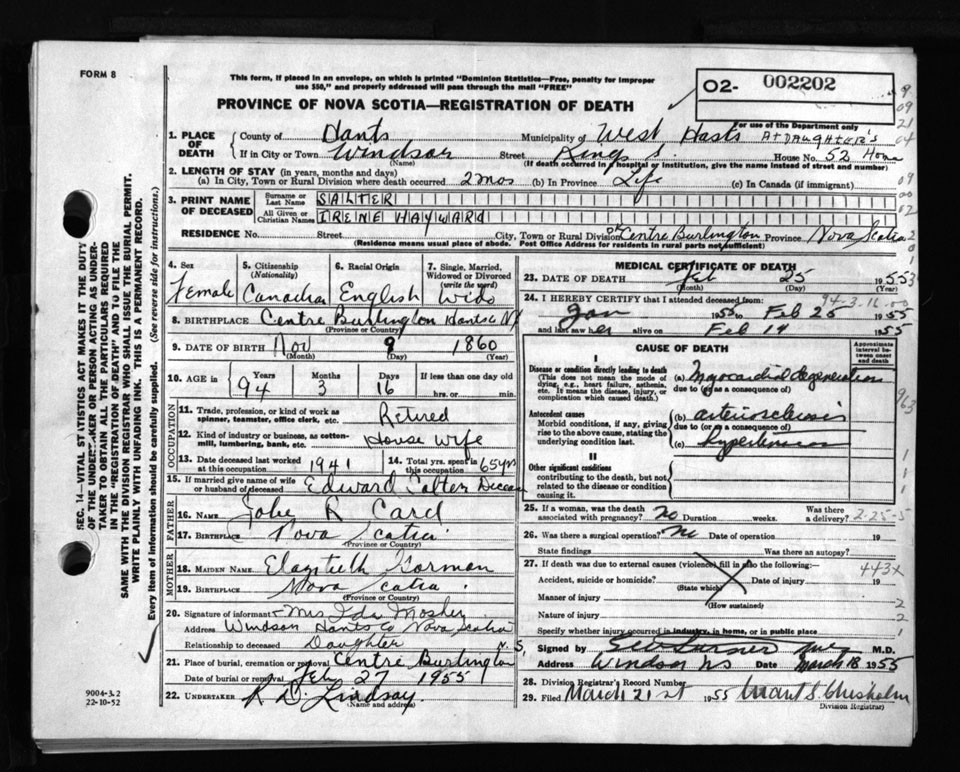 FORM 8
This form, if placed in an envelope, on which is printed "Dominion Statistics—Free, penalty for improper
use $50," and properly addressed will pass through the mail "FREE"
O2- 002202
PROVINCE OF NOVA SCOTIA—REGISTRATION OF DEATH
For use of the Department only
1. PLACE OF DEATH { County of Hants Municipality of West Hants AT DAUGHTER'S
If in City or Town Windsor Street King St House No. 52 Home
(Name) (If death occurred in a hospital or institution, give the name instead of street and number)
2. LENGTH OF STAY (in years, months and days)
(a) In City, Town or Rural Division where death occurred 2 mos (b) In Province Life (c) In Canada (if immigrant)
3. PRINT NAME OF DECEASED { Surname or Last Name SALTER
All Given or Christian Names IRENE HAYWARD
RESIDENCE No. Street City, Town or Rural Division of Centre Burlington Province Nova Scotia
(Residence means usual place of abode. Post Office Address for residents in rural parts not sufficient)
4. Sex Female
5. Citizenship (Nationality) Canadian
6. Racial Origin English
7. Single, Married, Widowed or Divorced (write the word) Wido
8. BIRTHPLACE Centre Burlington Hants Co NS
(Province or Country)
9. DATE OF BIRTH Nov 9 1860
(Month) (Day) (Year)
10. AGE in { Years Months Days If less than one day old
94 3 16 hrs. or min.
OCCUPATION
11. Trade, profession, or kind of work as spinner, teamster, office clerk, etc. Retired
12. Kind of industry or business, as cotton-mill, lumbering, bank, etc. House wife
13. Date deceased last worked at this occupation 1941 14. Total yrs. spent in this occupation 65 yrs
15. If married give name of wife or husband of deceased Edward Salter Deceas
FATHER
16. NAME John R Card
17. BIRTHPLACE Nova Scotia
(Province or Country)
MOTHER
18. MAIDEN NAME Elazibeth Harman
19. BIRTHPLACE Nova Scotia
(Province or Country)
20. Signature of informant Mrs Ida Mosher
Address Windsor Hants Co Nova Scotia
Relationship to deceased Daughter N.S,
21. Place of burial, cremation or removal Centre Burlington
Date of burial or removal Feb 27 1955
22. UNDERTAKER K D Lindsay.
(Name and address)
MEDICAL CERTIFICATE OF DEATH
23. DATE OF DEATH Feb 25 1955
(Month) (Day) (Year)
24. I HEREBY CERTIFY that I attended deceased from: 94-3-16-00
Jan 1955 to Feb 25 1955
and last saw her alive on Feb 19 1955
CAUSE OF DEATH
Approximate interval between onset and death
I
Disease or condition directly leading to death
(This does not mean the mode of dying, e.g., heart failure, asthenia, etc. It means the disease, injury, or complication which caused death.)
(a) Myocardial degeneration
due to (or as a consequence of)
Antecedent causes
Morbid conditions, if any, giving rise to the above cause, stating the underlying condition last.
(b) arteriosclerosis
due to (or as a consequence of)
(c) hypertension
II
Other significant conditions
contributing to the death, but not related to the disease or condition causing it.
25. If a woman, was the death associated with pregnancy? No Duration weeks. Was there a delivery? 2-25-5
26. Was there a surgical operation? No Date of operation 19
State findings Was there an autopsy?
27. If death was due to external causes (violence) fill in also the following: 443X
Accident, suicide or homicide? Date of injury 19
(State which)
Manner of injury
(How sustained)
Nature of injury
Specify whether injury occurred in industry, in home, or in public place
Signed by Turner M.D.
Address Windsor NS Date March 18 1955
28. Division Registrar's Record Number
29. Filed March 21st 1955 Chisholm
Division Registrar
SEC. 14—VITAL STATISTICS ACT MAKES IT THE DUTY
OF THE UNDERTAKER OR PERSON ACTING AS UNDER-
TAKER TO OBTAIN ALL THE PARTICULARS REQUIRED
IN THE "REGISTRATION OF DEATH" AND TO FILE THE
SAME WITH THE DIVISION REGISTRAR WHO SHALL ISSUE THE BURIAL PERMIT.
WRITE PLAINLY WITH UNFADING INK. THIS IS A PERMANENT RECORD.
Every item of information should be carefully supplied. (See reverse side for instructions.)
9004-3.2
22-10-52